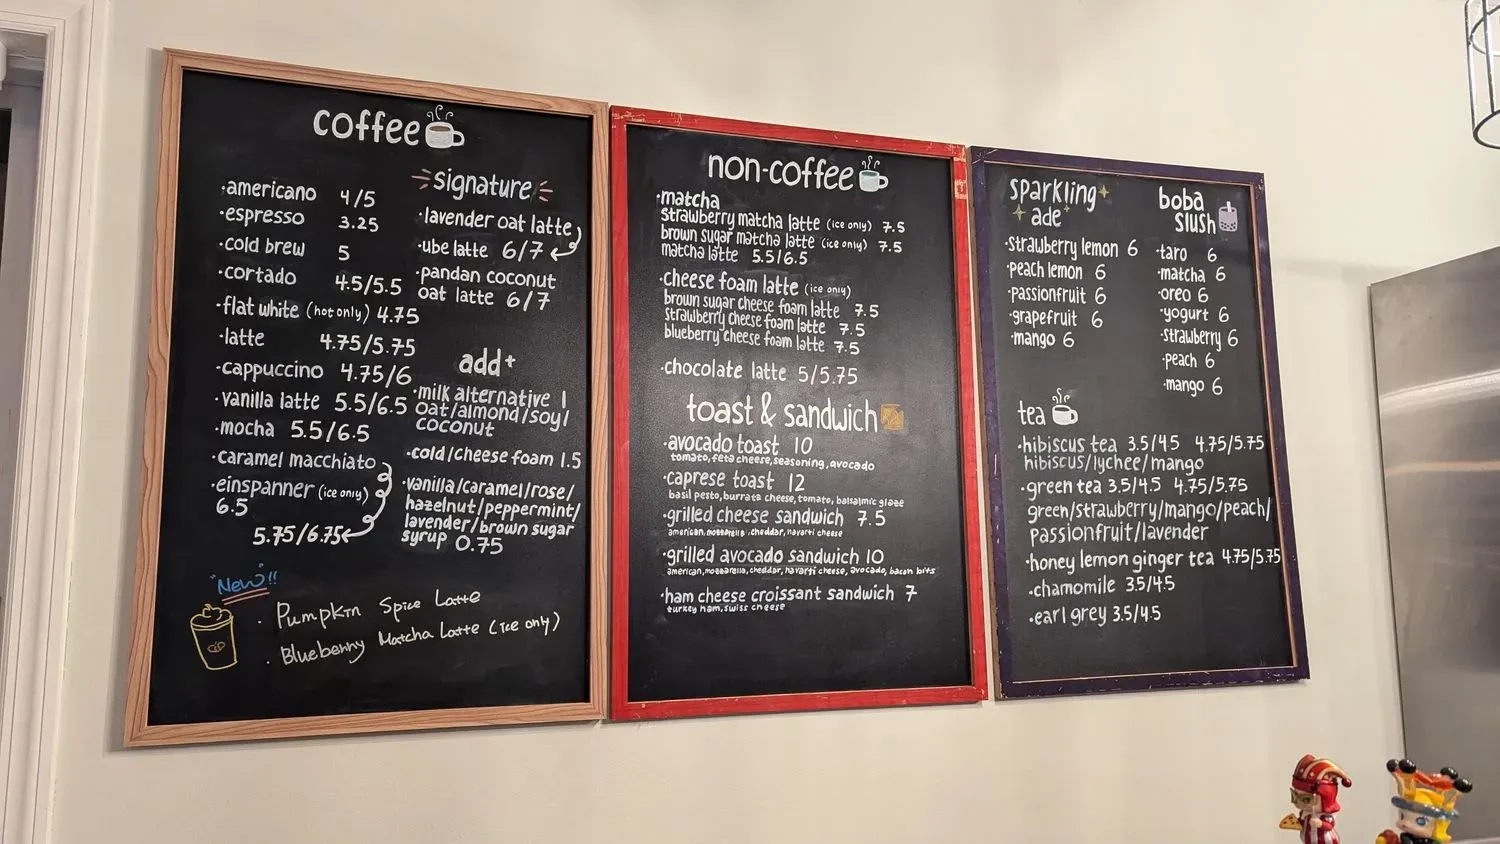 coffee
·americano 4/5
·espresso 3.25
·cold brew 5
·cortado 4.5/5.5
·flat white (hot only) 4.75
·latte 4.75/5.75
·cappuccino 4.75/6
·vanilla latte 5.5/6.5
·mocha 5.5/6.5
·caramel macchiato
·einspanner (ice only)
6.5
5.75/6.75
signature
·lavender oat latte
·ube latte 6/7
·pandan coconut
oat latte 6/7
add+
·milk alternative 1
oat/almond/soy/
coconut
·cold/cheese foam 1.5
·vanilla/caramel/rose/
hazelnut/peppermint/
lavender/brown sugar
syrup 0.75
New!!
· Pumpkin Spice Latte
· Blueberry Matcha Latte (ice only)
non-coffee
·matcha
strawberry matcha latte (ice only) 7.5
brown sugar matcha latte (ice only) 7.5
matcha latte 5.5/6.5
·cheese foam latte (ice only)
brown sugar cheese foam latte 7.5
strawberry cheese foam latte 7.5
blueberry cheese foam latte 7.5
·chocolate latte 5/5.75
toast & sandwich
·avocado toast 10
tomato, feta cheese, seasoning, avocado
·caprese toast 12
basil pesto, burrata cheese, tomato, balsalmic glaze
·grilled cheese sandwich 7.5
american, mozzarella, cheddar, havarti cheese
·grilled avocado sandwich 10
american, mozzarella, cheddar, havarti cheese, avocado, bacon bits
·ham cheese croissant sandwich 7
turkey ham, swiss cheese
sparkling
ade
·strawberry lemon 6
·peach lemon 6
·passionfruit 6
·grapefruit 6
·mango 6
boba
slush
·taro 6
·matcha 6
·oreo 6
·yogurt 6
·strawberry 6
·peach 6
·mango 6
tea
·hibiscus tea 3.5/4.5 4.75/5.75
hibiscus/lychee/mango
·green tea 3.5/4.5 4.75/5.75
green/strawberry/mango/peach/
passionfruit/lavender
·honey lemon ginger tea 4.75/5.75
·chamomile 3.5/4.5
·earl grey 3.5/4.5